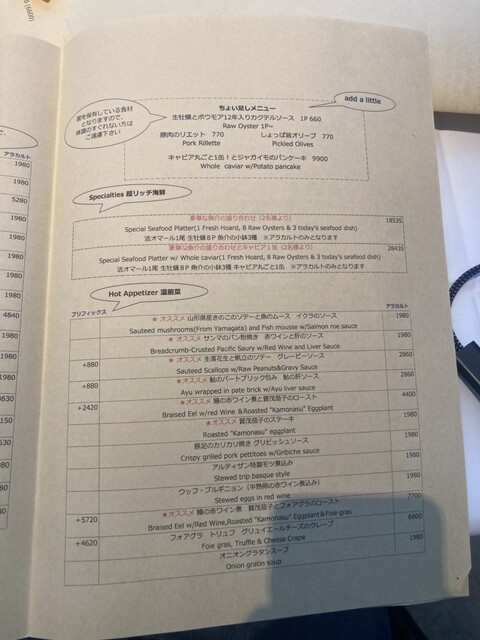 (6600)
アラカルト
1980
1980
5280
1980
1980
1980
1980
4840
1980
1980
530
1980
1980
ちょい足しメニュー
add a little
菌を保有している食材
となりますので、
体調のすぐれない方は
ご遠慮下さい
生牡蠣とボウモア12年入りカクテルソース 1P 660
Raw Oyster 1P~
豚肉のリエット 770 しょっぱ旨オリーブ 770
Pork Rillette Pickled Olives
キャビア丸ごと1缶!とジャガイモのパンケーキ 9900
Whole caviar w/Potato pancake
Specialties 超リッチ海鮮
豪華な魚介の盛り合わせ (2名様より) 18535
Special Seafood Platter(1 Fresh Hoard, 8 Raw Oysters & 3 today's seafood dish)
活オマール1尾 生牡蠣8P 魚介の小鉢3種 ※アラカルトのみとなります
豪華な魚介の盛り合わせとキャビア1缶 (2名様より) 28435
Special Seafood Platter w/ Whole caviar(1 Fresh Hoard, 8 Raw Oysters & 3 today's seafood dish)
活オマール1尾 生牡蠣8P 魚介の小鉢3種 キャビア丸ごと1缶 ※アラカルトのみとなります
Hot Appetizer 温前菜
プリフィックス アラカルト
★オススメ 山形県産きのこのソテーと魚のムース イクラのソース 1980
Sauteed mushrooms(From Yamagata) and Fish mousse w/Salmon roe sauce
★オススメ サンマのパン粉焼き 赤ワインと肝のソース 1980
Breadcrumb-Crusted Pacific Saury w/Red Wine and Liver Sauce
+880 ★オススメ 生落花生と帆立のソテー グレービーソース 2860
Sauteed Scallops w/Raw Peanuts&Gravy Sauce
+880 ★オススメ 鮎のパートブリック包み 鮎の肝ソース 2860
Ayu wrapped in pate brick w/Ayu liver sauce
+2420 ★オススメ 鰻の赤ワイン煮と賀茂茄子のロースト 4400
Braised Eel w/red Wine &Roasted "Kamonasu" Eggplant
★オススメ 賀茂茄子のステーキ 1980
Roasted "Kamonasu" eggplant
豚足のカリカリ焼き グリビッシュソース 1980
Crispy grilled pork pettitoes w/Gribiche sauce
アルティザン特製モツ煮込み 1980
Stewed trip basque style
ウッフ・ブルギニョン (半熟卵の赤ワイン煮込み) 1980
Stewed eggs in red wine
+5720 ★オススメ 鰻の赤ワイン煮 賀茂茄子とフォアグラのロースト 7700
Braised Eel w/Red Wine,Roasted "Kamonasu" Eggplant&Foie gras
+4620 フォアグラ トリュフ グリュイエールチーズのクレープ 6600
Foie gras, Truffle & Cheese Crape
オニオングラタンスープ 1980
Onion gratin soup